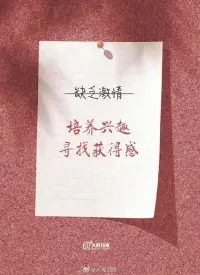 缺乏激情
培养兴趣
寻找获得感
人民日报
@人民日报